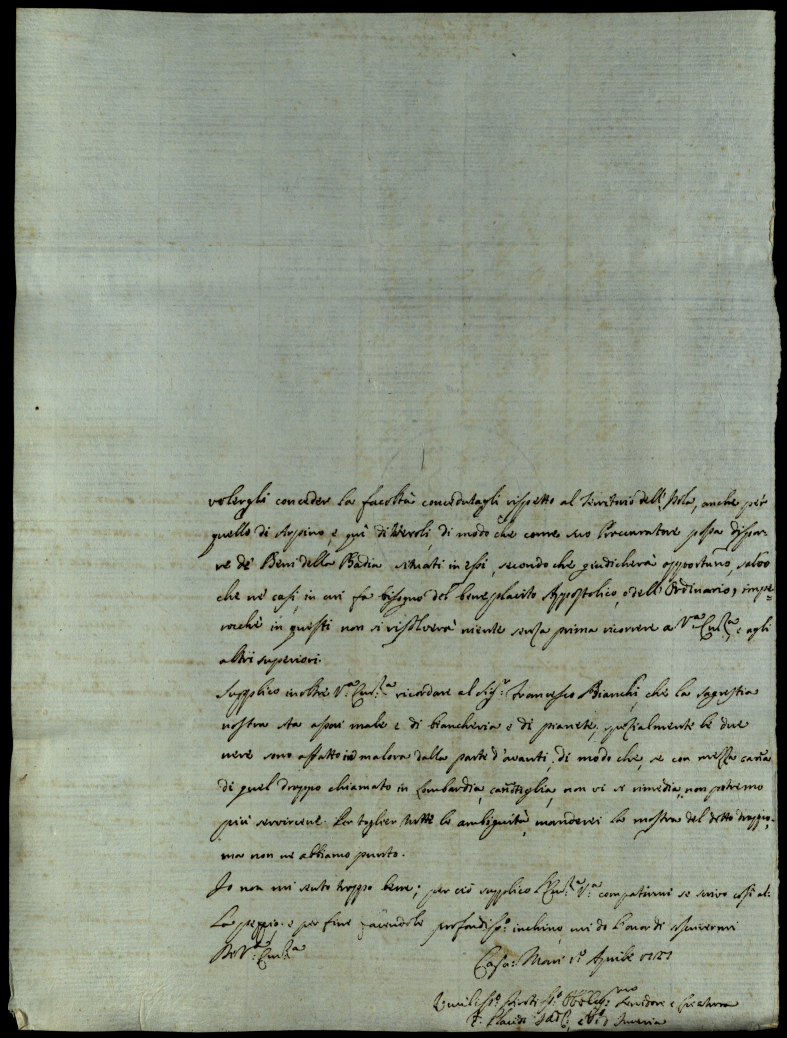 volergli conceder la facoltà concedutagli rispetto al Territorio dell'Isola, anche per
quello di Arpino, e qui di Veroli, di modo che come suo Procuratore possa dispor-
re de' Beni della Badia situati in essi, secondo che giudicherà opportuno, salvo
che ne' casi, in cui fa bisogno del beneplacito Appostolico, o dell'Ordinario, impe=
rochè in questi non si risolverà niente senza prima ricorrere a V.ª Em.za, e agli
altri superiori.
Supplico inoltre V.ª Em.za ricordare al Sig.r Francesco Bianchi, che la sagrestia
nostra sta assai male e di biancheria e di pianete, spezialmente le due
nere sono affatto in malora dalla parte d'avanti, di modo che, se con mezza canna
di quel drappo chiamato in Lombardia, canotiglia, non vi si rimedia, non potremo
più servircene. Per toglier tutte le ambiguità, manderei la mostra del detto drappo,
ma non ne abbiamo punto.
Io non mi sento troppo bene; per ciò supplico l'Em.za V.ª compatirmi se scrivo così al-
la peggio: e per fine facendole profondiss.º inchino, mi do l'onor di scrivermi
Di V.ª Em.za
Casa: Mari 1.º Aprile
Umiliss.º Obbligmo Servidore e Creatura